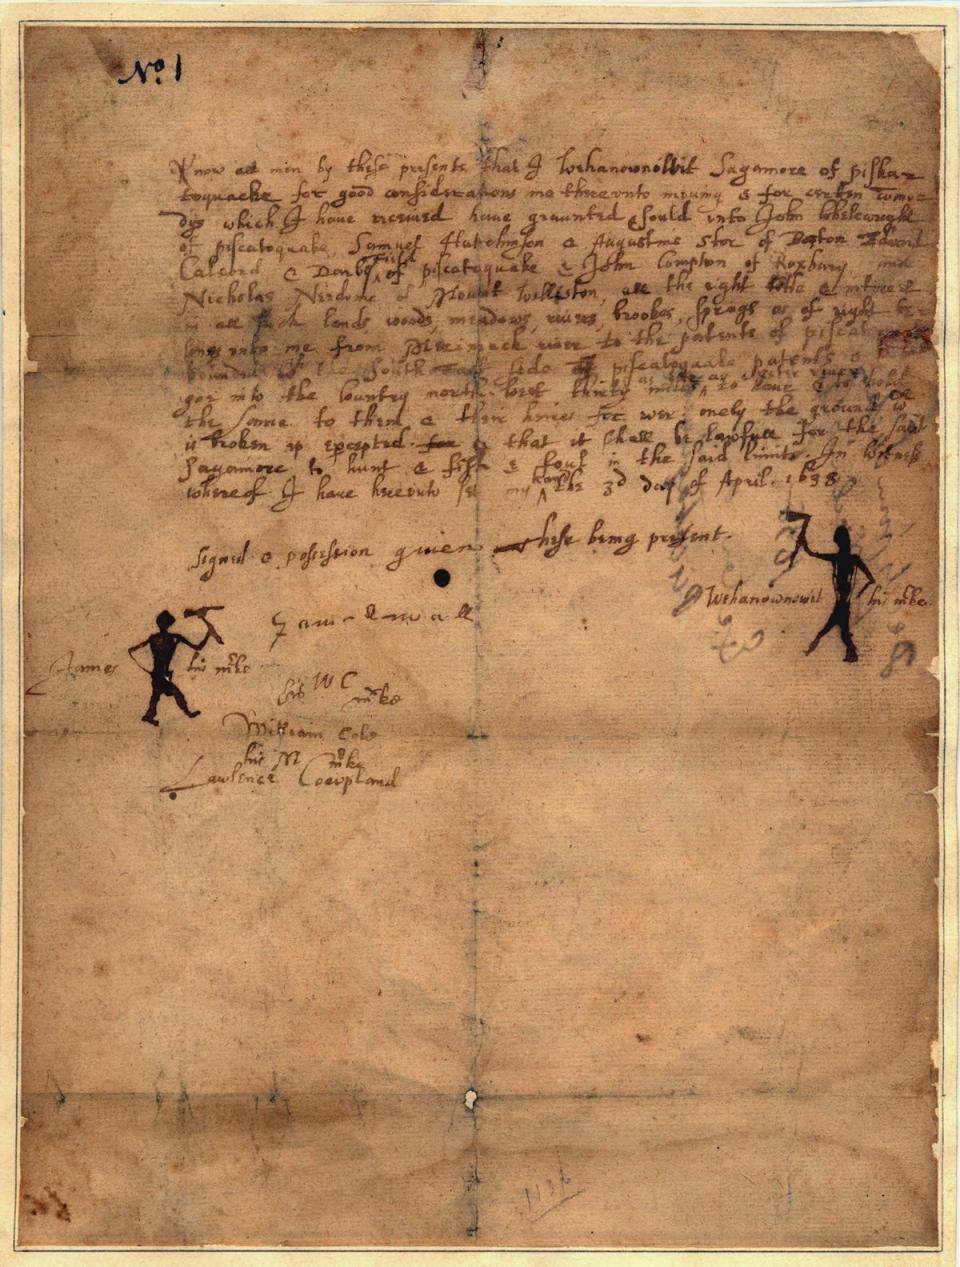 No 1
Know all men by these presents that I Wehanownowit Sagamore of piskae
toquacke for good considerations me therevnto mouing & for certen comys
dys which I have receiued have graunted & sould vnto John Whelewright
of piscatoquake, Samuel Hutchinson & Augustine Stor of Boston Edward
Calcord & Darby Field of piscatoquake & John Compton of Roxbury and
Nicholas Needome of Mount Walliston, all the right title & interest
in all such lands, woods, meadows, riuers, brookes, springs as of right be
long vnto me from Merimack riuer to the patents of piscatoquake
bounded the South East side of piscatoquake patents &
goe into the Country north West thirty miles as as to haue & to hold
the same to them & their heires for euer. onely the ground wch
is broken vp excepted. for & that it shall be lawfull for the said
Sagamore to hunt & fish & foul in the said limits. In Witness
whereof I have herevnto set my hand the 3d day of April. 1638
Signed & possession giuen these being present.
Wehanownowit his mke.
James his mke
his W C mke
William Cole
his M mke
Lawrence Coepland
1136